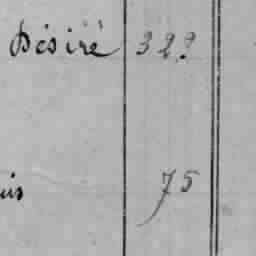 Désiré 322
uis 75